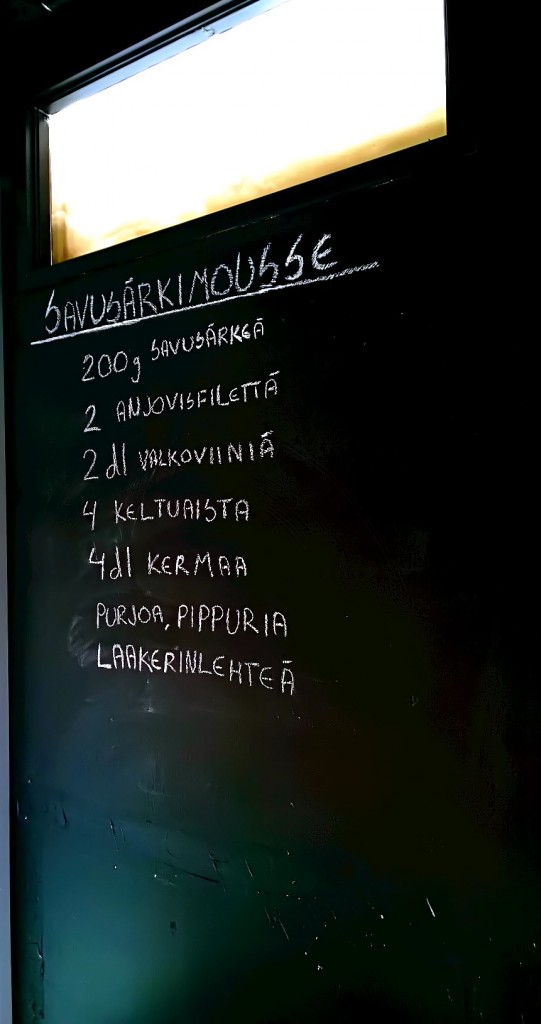 SAVUSÄRKIMOUSSE
200g SAVUSÄRKEÄ
2 ANJOVISFILETTÄ
2 dl VALKOVIINIÄ
4 KELTUAISTA
4dl KERMAA
PURJOA, PIPPURIA
LAAKERINLEHTEÄ